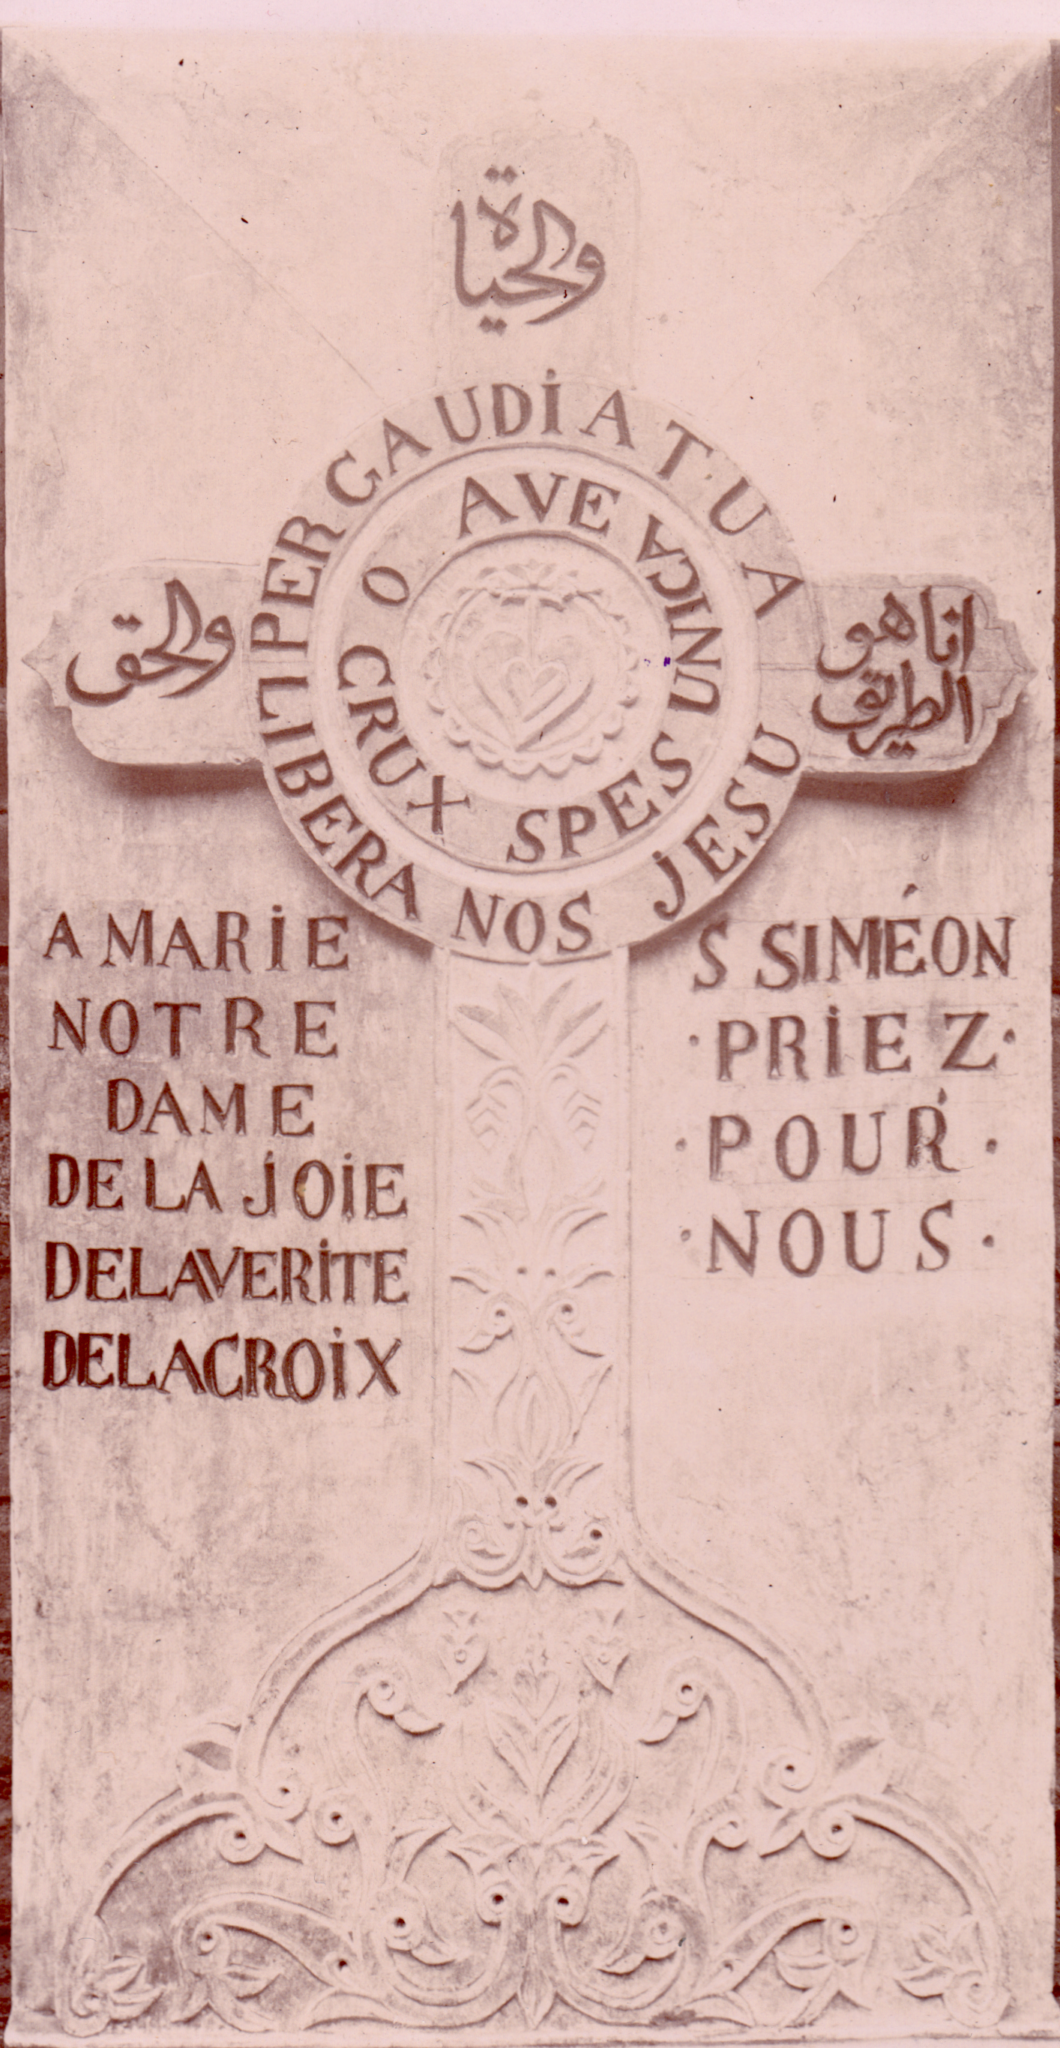 والحياة
انا هو
الطريق
والحق
PER GAUDIA TUA LIBERA NOS JESU
O CRUX AVE SPES UNICA
A MARIE
NOTRE
DAME
DE LA JOIE
DE LA VERITE
DE LA CROIX
S SIMÉON
· PRIEZ ·
· POUR ·
· NOUS ·